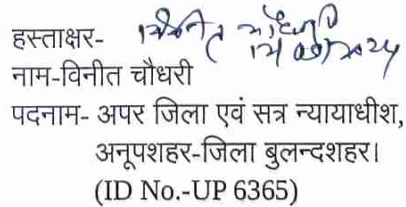 हस्ताक्षर- विनीत चौधरी
नाम-विनीत चौधरी
पदनाम- अपर जिला एवं सत्र न्यायाधीश,
अनूपशहर-जिला बुलन्दशहर।
(ID No.-UP 6365)